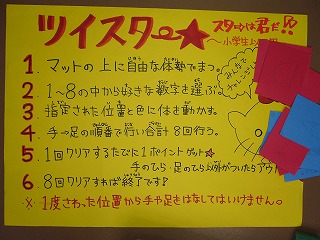 ツイスター★
スターは君だ!!
~小学生
みんなで
1. マットの上に自由な体勢でまつ。
2. 1~8の中から好きな数字を選ぶ。
3. 指定された位置と色に体を動かす。
4. 手→足の順番で行い合計8回行う。
5. 1回クリアするたびに1ポイントゲット☆
手のひら・足のひら以外がついたらアウト
6. 8回クリアすれば終了です!
※ 1度さわった位置から手や足をはなしてはいけません。